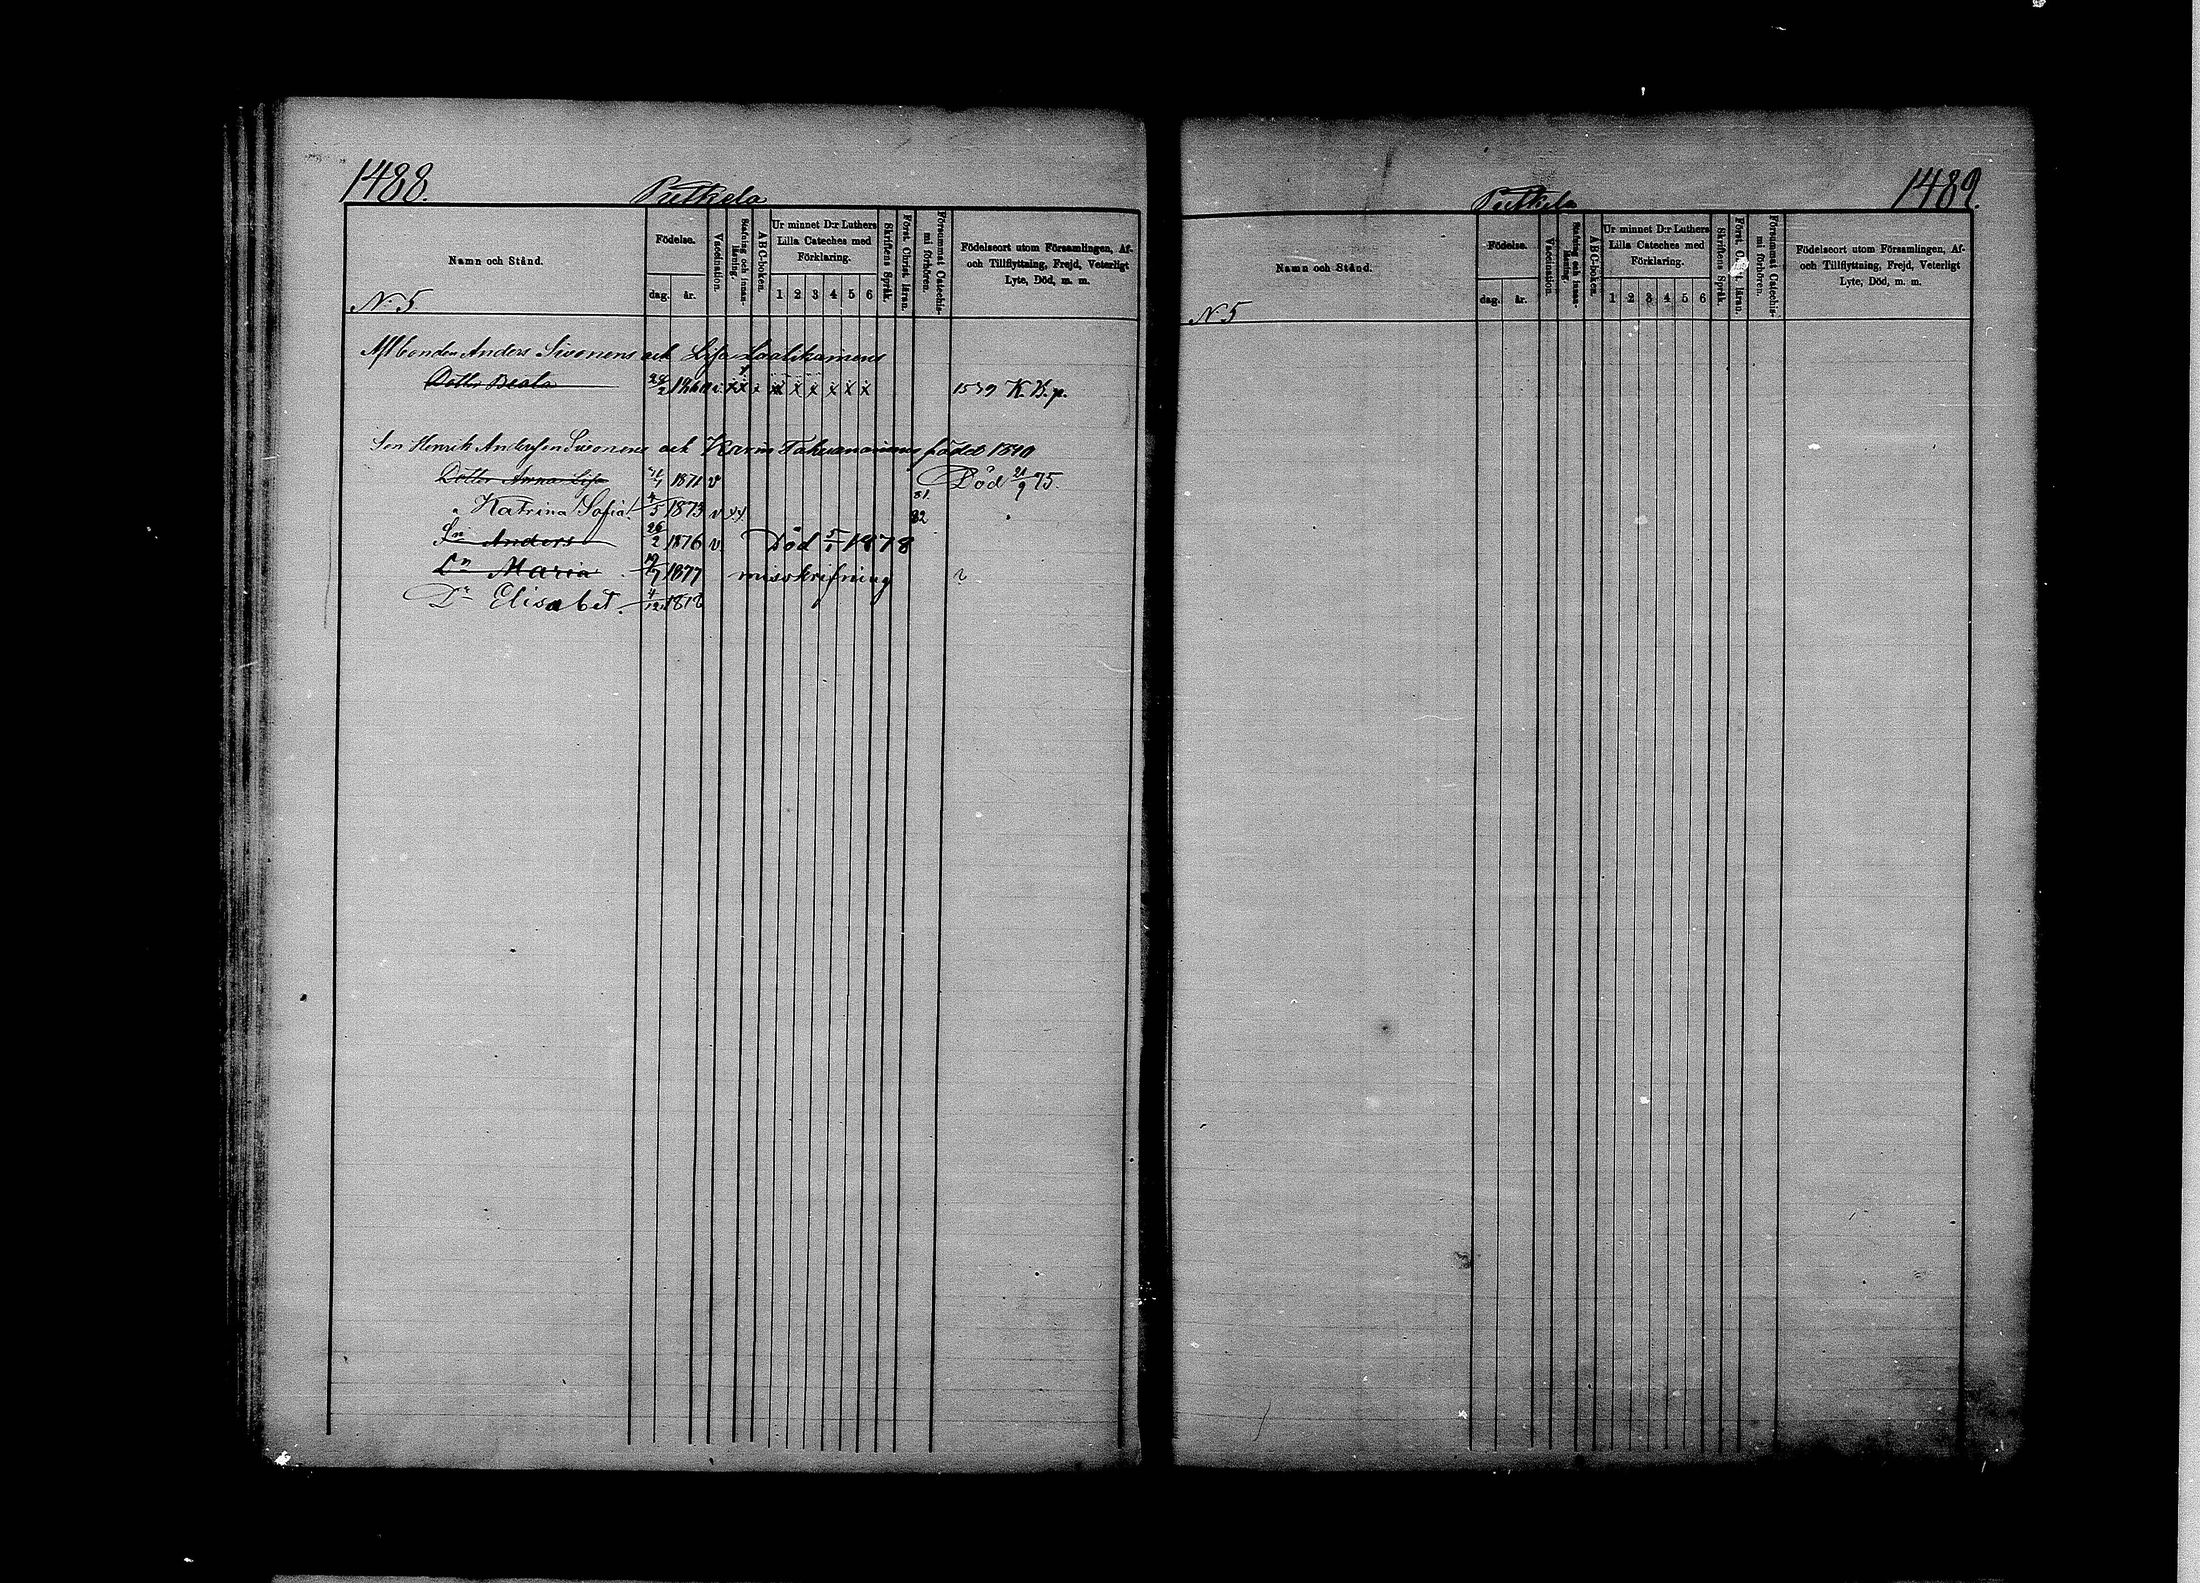 1488.
Putkela
Namn och Stånd.
Födelse.
dag.
år.
Vaccination.
Stafning och innanläsning.
ABC-boken.
Ur minnet D:r Luthers Lilla Cateches med Förklaring.
1 2 3 4 5 6
Skriftens Språk.
Först. Christ. läran.
Försummat Catechismi förhören.
Födelseort utom Församlingen, Af- och Tillflyttning, Frejd, Veterligt Lyte, Död, m. m.
N. 5.
Afl bonden Anders Sivonens och Lisa
Dotter Beata 1860 v. x x x x x x x 1539 K. B. p.
Son Henrik Andersson Sivonens och Karin född 1840
Dotter Anna Lisa 1871 v Död 21/9 75.
81.
" Katrina Sofia 4/5 1873 v xx 82
Sn Anders 26/2 1876 v. Död 5/1 1878
Dr Maria 19/7 1877 misskrifning
Dr Elisabet. 4/12 1878
1489.
Putkela
Namn och Stånd.
Födelse.
dag.
år.
Vaccination.
Stafning och innanläsning.
ABC-boken.
Ur minnet D:r Luthers Lilla Cateches med Förklaring.
1 2 3 4 5 6
Skriftens Språk.
Först. Christ. läran.
Försummat Catechismi förhören.
Födelseort utom Församlingen, Af- och Tillflyttning, Frejd, Veterligt Lyte, Död, m. m.
N. 5